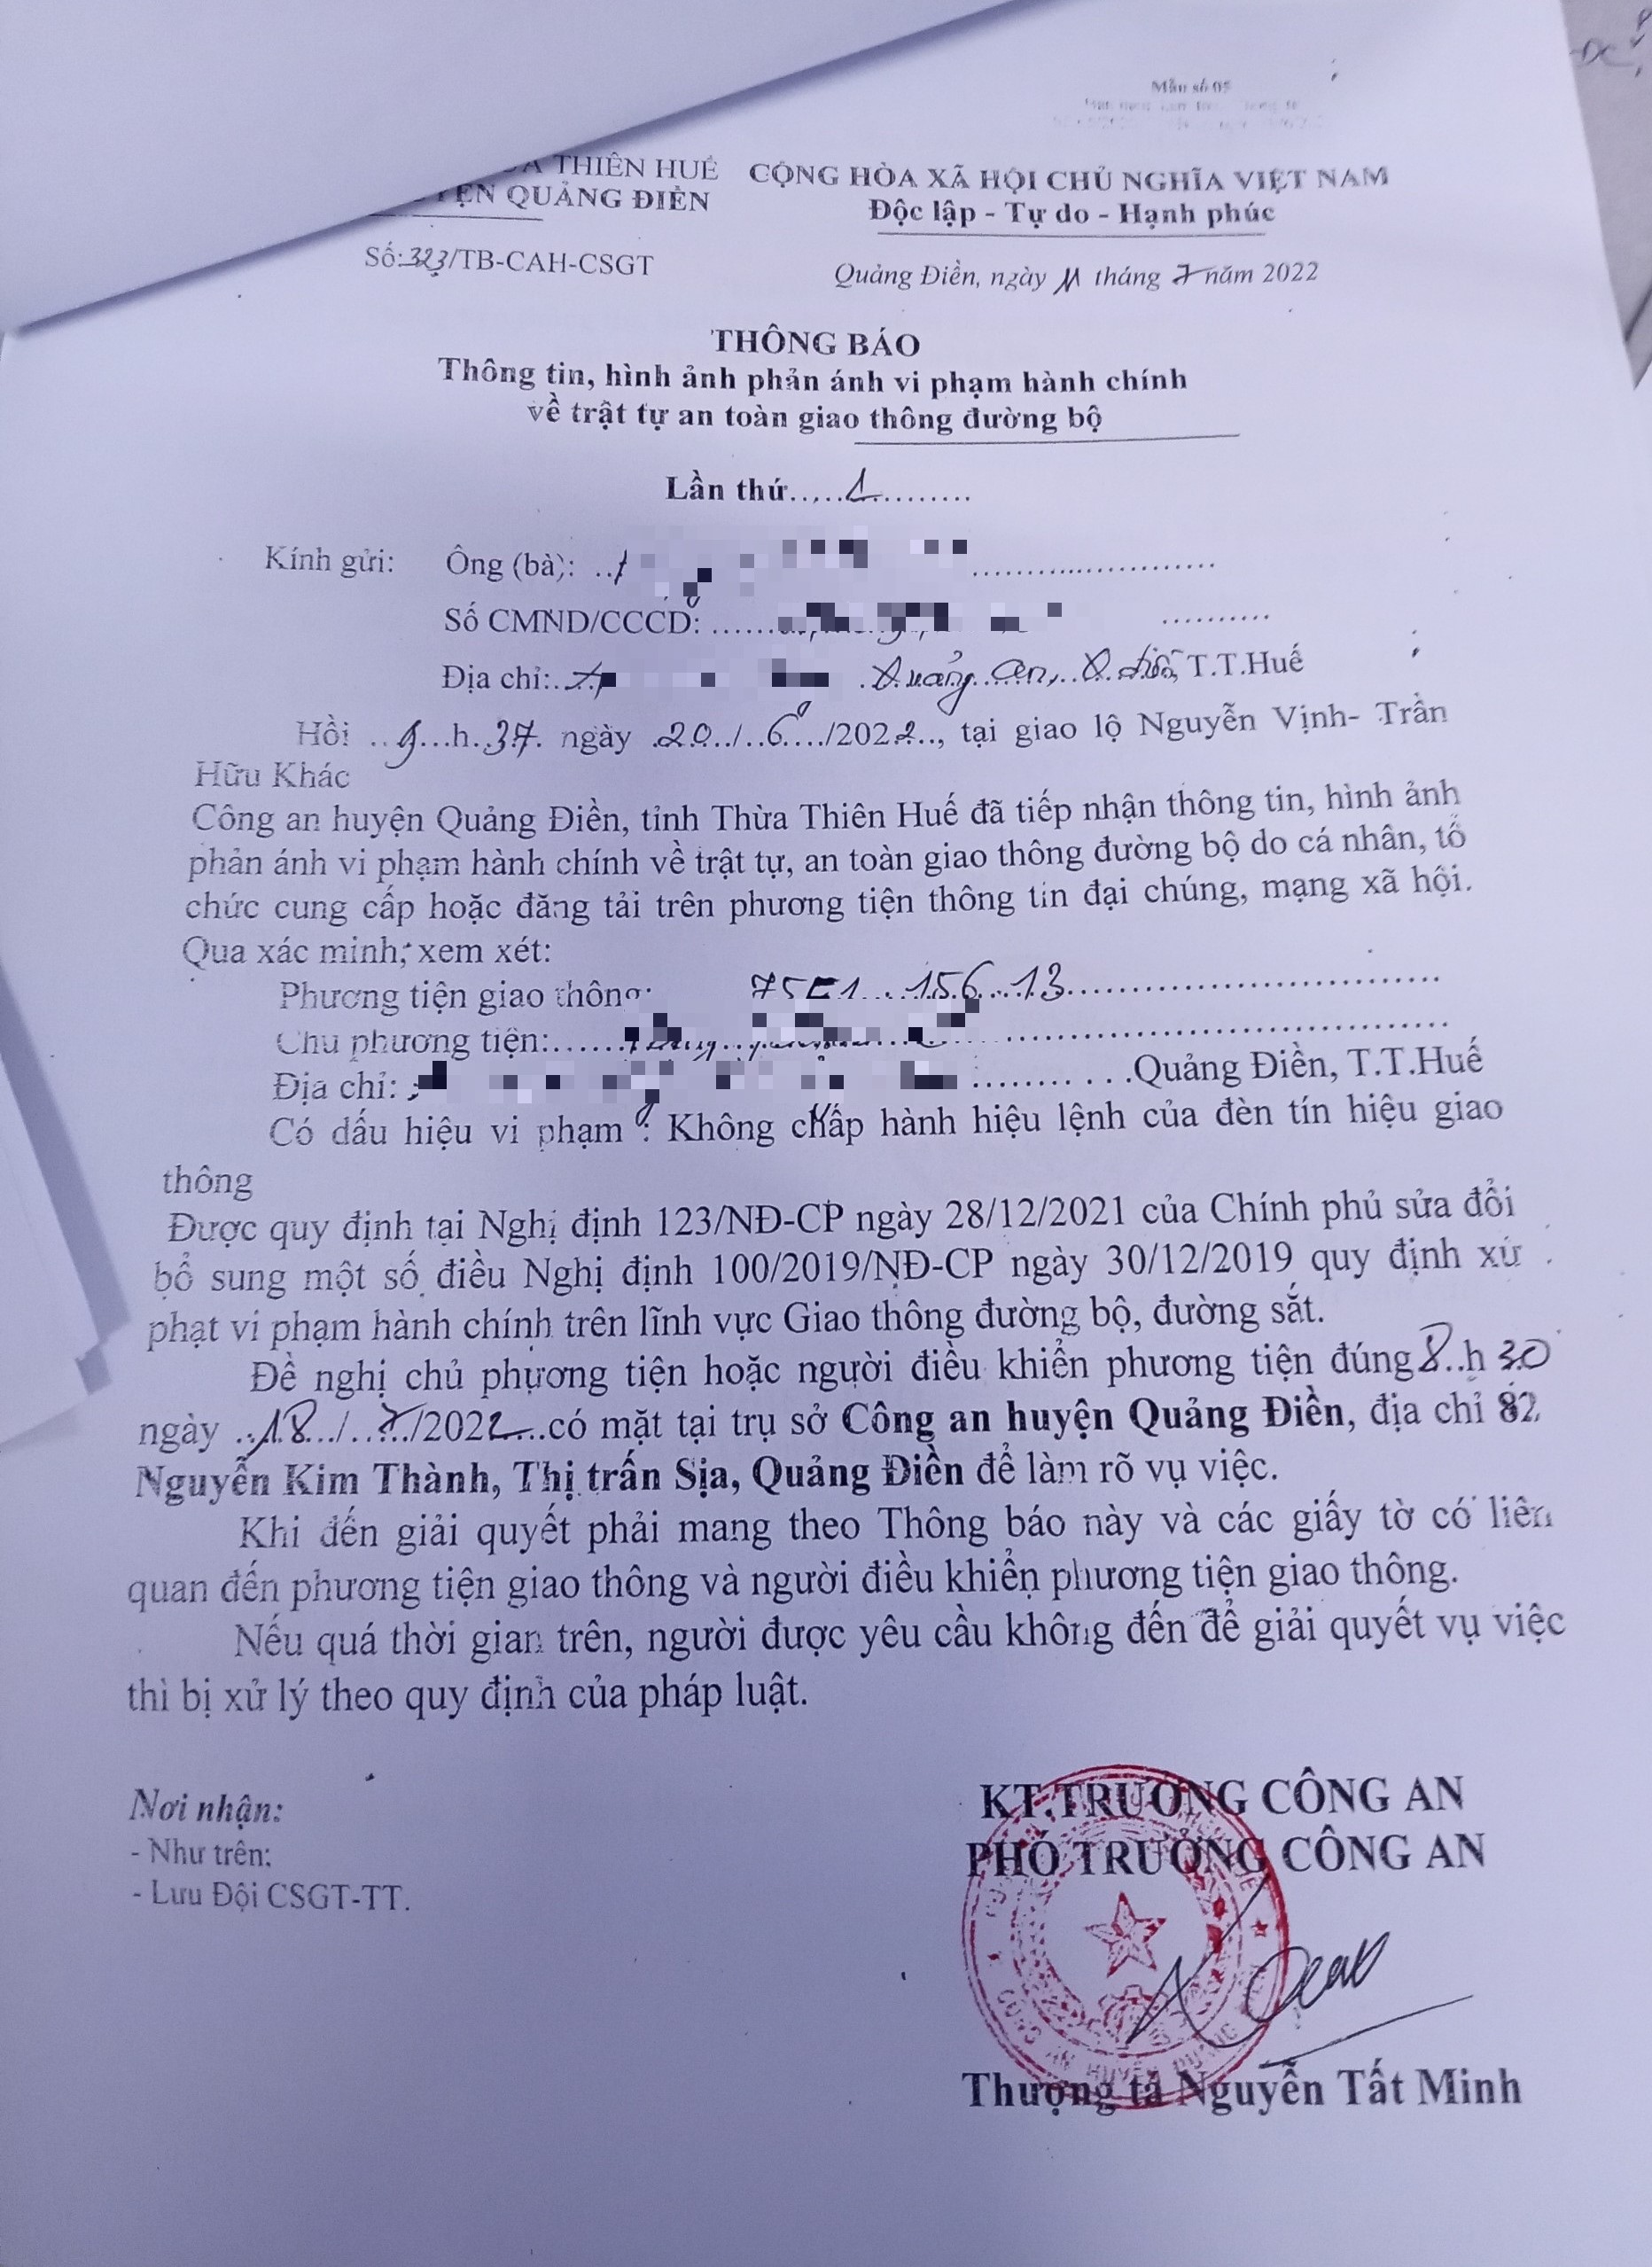 Mẫu số 05
THIÊN HUẾ
CỘNG HÒA XÃ HỘI CHỦ NGHĨA VIỆT NAM
QUẢNG ĐIỀN
Độc lập - Tự do - Hạnh phúc
Số: 323/TB-CAH-CSGT
Quảng Điền, ngày 11 tháng 7 năm 2022
THÔNG BÁO
Thông tin, hình ảnh phản ánh vi phạm hành chính
về trật tự an toàn giao thông đường bộ
Lần thứ.....1.........
Kính gửi: Ông (bà):
Số CMND/CCCD:
Địa chỉ: Quảng An, Q. Điền, T.T.Huế
Hồi ..9...h.37. ngày .20../..6../2022.., tại giao lộ Nguyễn Vịnh- Trần
Hữu Khác
Công an huyện Quảng Điền, tỉnh Thừa Thiên Huế đã tiếp nhận thông tin, hình ảnh
phản ánh vi phạm hành chính về trật tự, an toàn giao thông đường bộ do cá nhân, tổ
chức cung cấp hoặc đăng tải trên phương tiện thông tin đại chúng, mạng xã hội.
Qua xác minh, xem xét:
Phương tiện giao thông: 75E1...156.13
Chủ phương tiện:
Địa chỉ: Quảng Điền, T.T.Huế
Có dấu hiệu vi phạm : Không chấp hành hiệu lệnh của đèn tín hiệu giao
thông
Được quy định tại Nghị định 123/NĐ-CP ngày 28/12/2021 của Chính phủ sửa đổi
bổ sung một số điều Nghị định 100/2019/NĐ-CP ngày 30/12/2019 quy định xử
phạt vi phạm hành chính trên lĩnh vực Giao thông đường bộ, đường sắt.
Đề nghị chủ phương tiện hoặc người điều khiển phương tiện đúng 8..h 30
ngày ..18../..7../2022...có mặt tại trụ sở Công an huyện Quảng Điền, địa chỉ 82
Nguyễn Kim Thành, Thị trấn Sịa, Quảng Điền để làm rõ vụ việc.
Khi đến giải quyết phải mang theo Thông báo này và các giấy tờ có liên
quan đến phương tiện giao thông và người điều khiển phương tiện giao thông.
Nếu quá thời gian trên, người được yêu cầu không đến để giải quyết vụ việc
thì bị xử lý theo quy định của pháp luật.
Nơi nhận:
- Như trên;
- Lưu Đội CSGT-TT.
KT.TRƯỞNG CÔNG AN
PHÓ TRƯỞNG CÔNG AN
Thượng tá Nguyễn Tất Minh